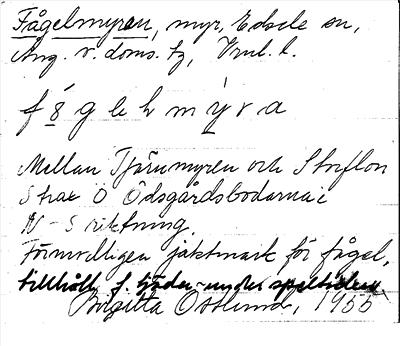 Fågelmyren, myr, Edsele sn,
Ång. v. doms. tg, Vml. l.
fö́geḷmýra
Mellan Tjärnmyren och Storflon
Strax Ö Ödsgårdsbodarna i
N - S riktning.
Förmodligen jaktmark för fågel,
tillhåll f. tjäder under speltiden
Birgitta Östlund, 1955